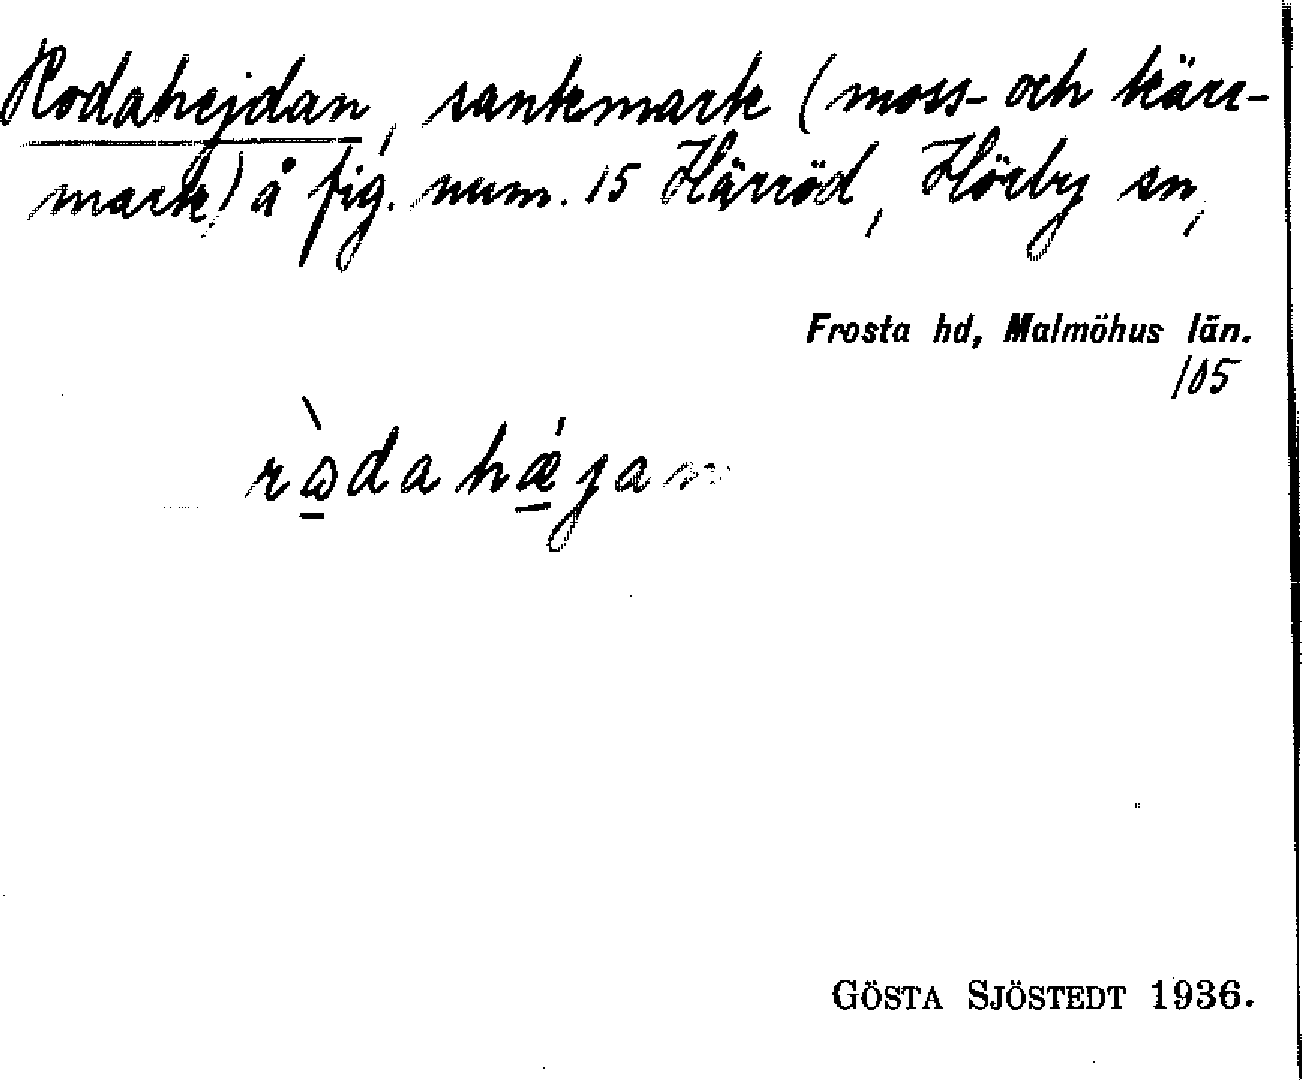 Rodahejdan, sankmark (moss- och kärr-
mark) å fig. num. 15 Härröd, Hörby sn,
Frosta hd, Malmöhus län.
105
rɷ̀dahǽjan
GÖSTA SJÖSTEDT 1936.